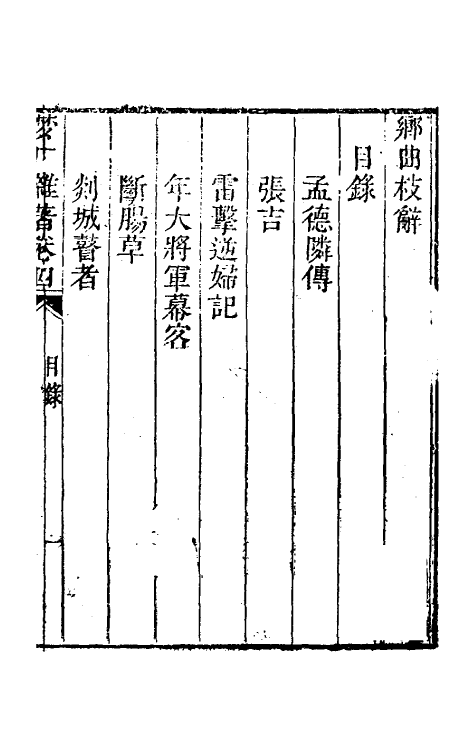 鄉曲枝辭
目錄
孟德隣傳
張吉
雷擊逆婦記
年大將軍幕客
斷腸草
剡城瞽者
雜著卷十四
目錄
一